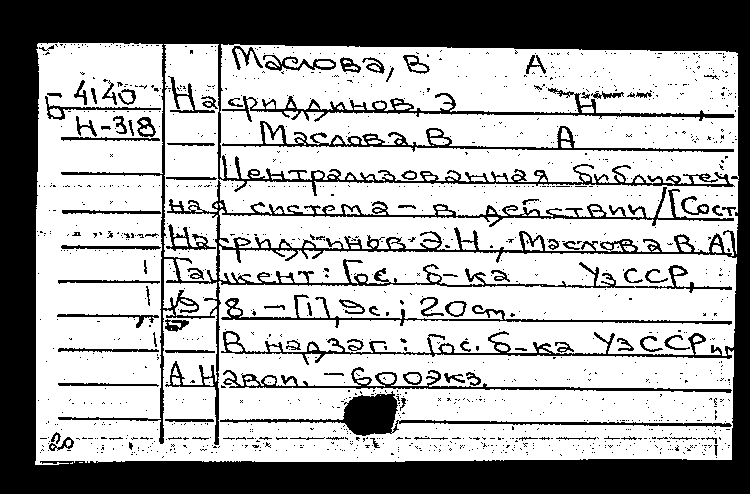 Маслова, В А
Б 4140 Насриддинов, Э Н
Н-318 Маслова, В А
Централизованная библиотеч-
ная система - в действии / [Сост.
Насриддинов Э.Н., Маслова В.А]
Ташкент: Гос. б-ка УзССР,
1978. - [1], 9с.; 20см.
В надзаг: Гос. б-ка УзССР им
А. Навои. - 600экз.
20